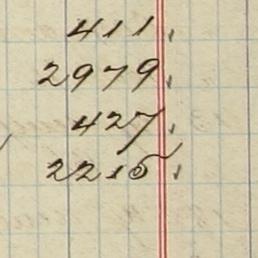 411.
2979.
427.
2215.